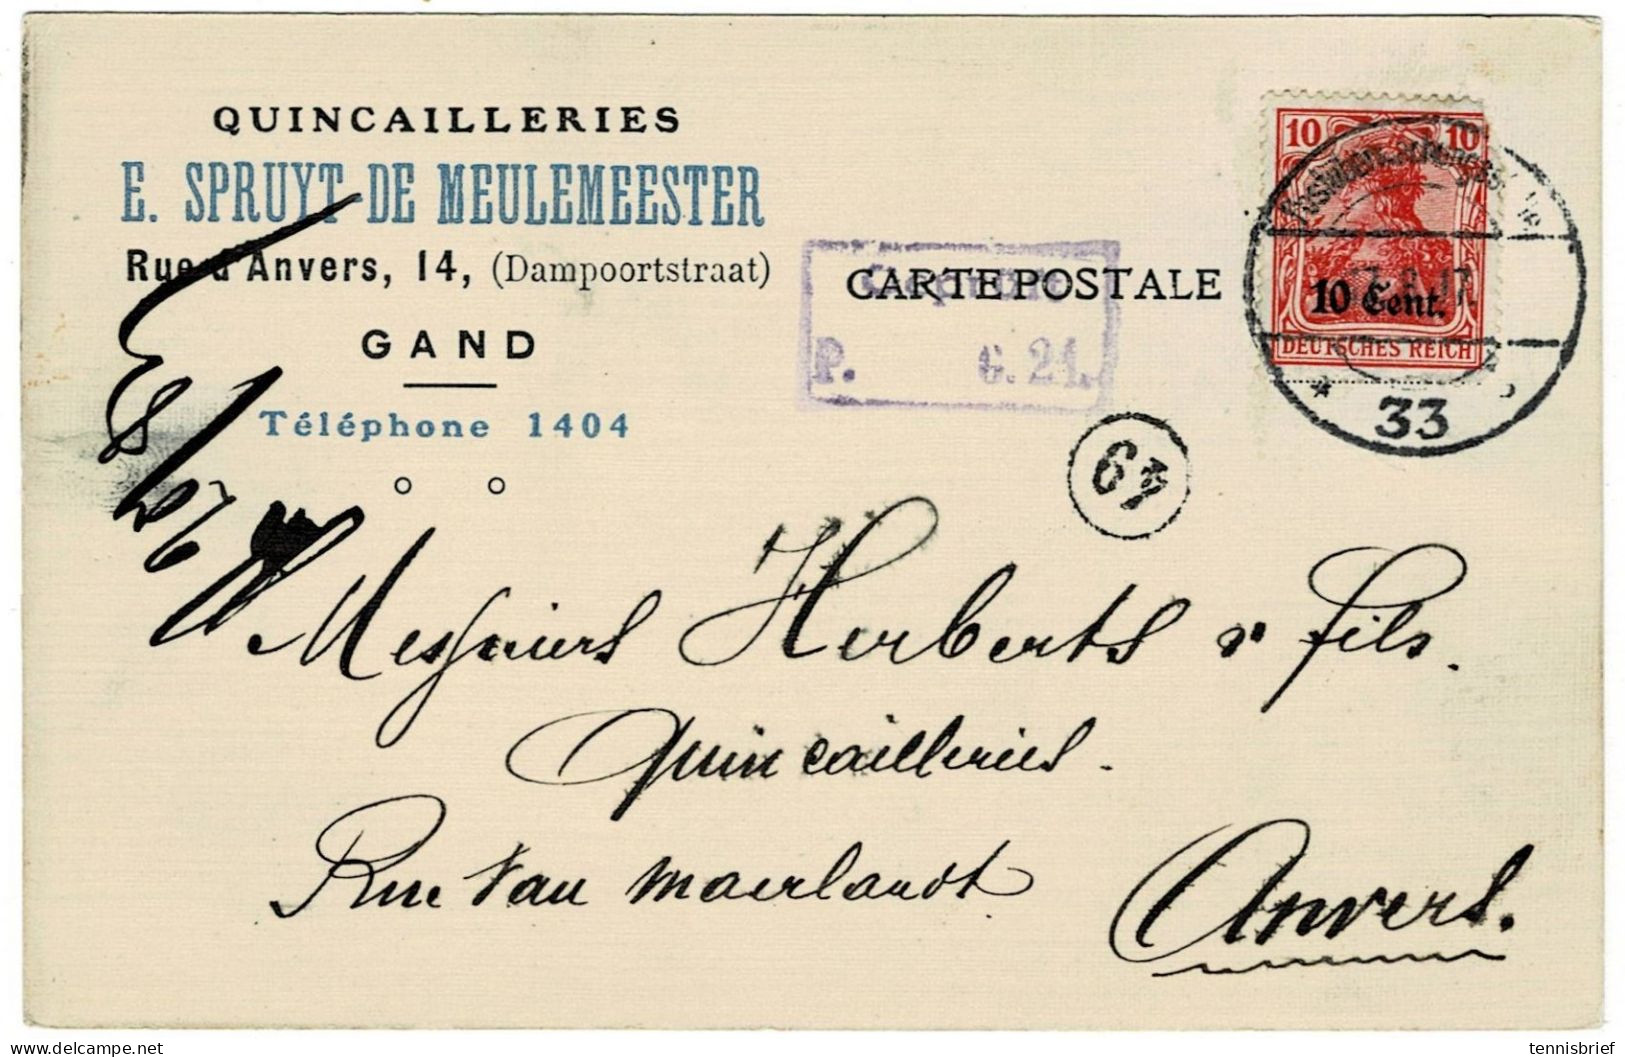 QUINCAILLERIES
E. SPRUYT-DE MEULEMEESTER
Rue d'Anvers, 14, (Dampoortstraat)
GAND
Téléphone 1404
CARTE POSTALE
Geprüft
P. G. 21.
10 10
10 Cent.
DEUTSCHES REICH
33
49
Messieurs Herberts & fils.
Quincailleries.
Rue Van Maerlandt
Anvers.
tennisbrief